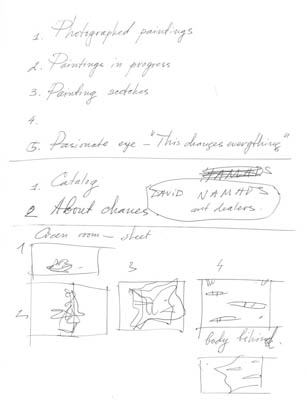 1. Photographed paintings
2. Paintings in progress
3. Painting scetches
4.
5. Pasionate eye – "This changes everything"
1. Catalog
DAVID NAMADS
and dealers.
2 About
Green room – sheet
1
3
4
2
body behind.